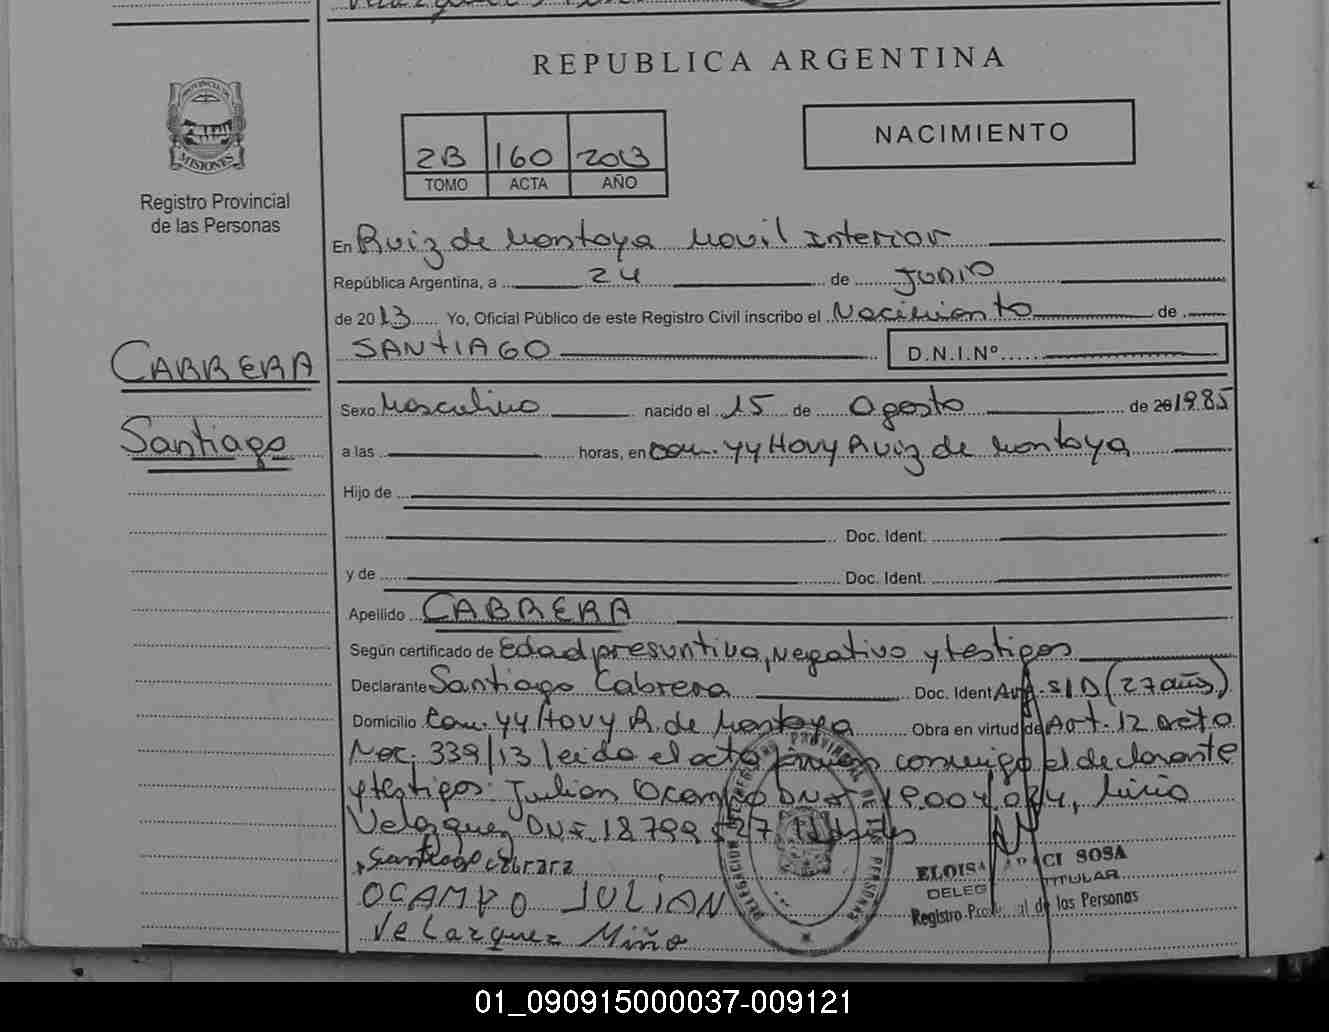 REPUBLICA ARGENTINA
PROVINCIA DE
MISIONES
Registro Provincial
de las Personas
2B 160 2013
TOMO ACTA AÑO
NACIMIENTO
En Ruiz de Montoya Movil Interior
República Argentina, a 24 de Junio
de 2013 Yo, Oficial Público de este Registro Civil inscribo el Nacimiento de
SANTIAGO D.N.I.Nº
CABRERA
Santiago
Sexo Masculino nacido el 15 de Agosto de 20 1985
a las horas, en Com. YY Hovy Ruiz de Montoya
Hijo de
Doc. Ident.
y de Doc. Ident.
Apellido CABRERA
Según certificado de Edad presuntiva, Negativo y testigos
Declarante Santiago Cabrera Doc. Ident Arg. S/D (27 años)
Domicilio Com. YY Hovy R. de Montoya Obra en virtud de Art. 12 acta
Nac. 339/13 leida el acta firman conmigo el declarante
y testigos: Julian Ocampo DNI 19.004.024,
Velazquez DNI. 18.799.527
Santiago cabrara
OCAMPO JULIAN
Velarquez Miño
DELEGACION DEL REGISTRO PROVINCIAL DE LAS PERSONAS
ELOISA SOSA
DELEG TITULAR
Registro Provincial de las Personas
01_090915000037-009121